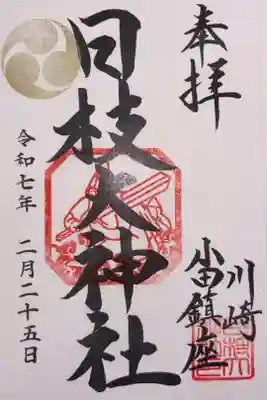 奉拝
川崎
小田鎮座
日枝大神社
令和七年 二月二十五日